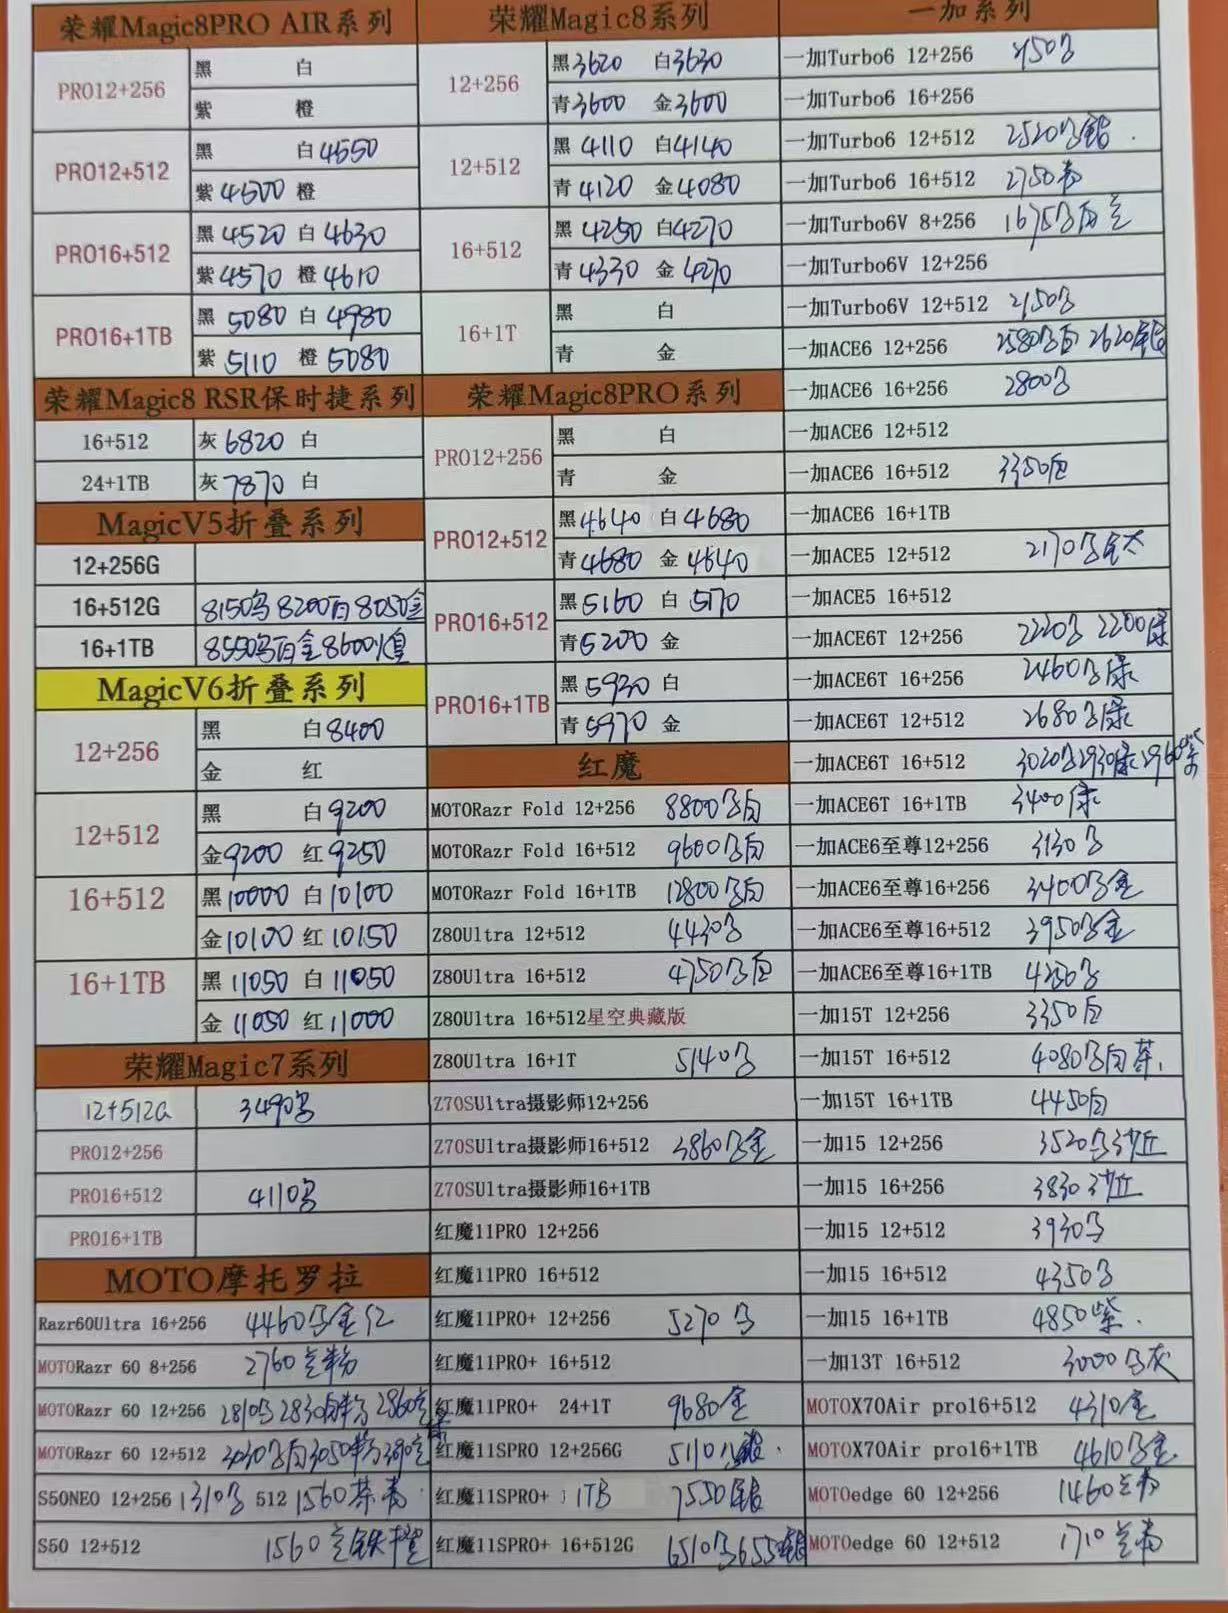 荣耀Magic8PRO AIR系列
PRO12+256
黑 白
紫 橙
PRO12+512
黑 白4550
紫4500 橙
PRO16+512
黑4520 白4630
紫4570 橙4610
PRO16+1TB
黑5080 白4980
紫5110 橙5080
荣耀Magic8 RSR保时捷系列
16+512 灰6820 白
24+1TB 灰7870 白
MagicV5折叠系列
12+256G
16+512G 8150黑 8200白 8050金
16+1TB 8550黑白金 8600
MagicV6折叠系列
12+256
黑 白8400
金 红
12+512
黑 白9200
金9200 红9250
16+512
黑10000 白10100
金10100 红10150
16+1TB
黑11050 白11050
金11050 红11000
荣耀Magic7系列
12+512G 3490黑
PRO12+256
PRO16+512 4110黑
PRO16+1TB
MOTO摩托罗拉
Razr60Ultra 16+256 4460黑金红
MOTORazr 60 8+256 2760兰粉
MOTORazr 60 12+256 2810黑 2830白粉 2860兰
MOTORazr 60 12+512
S50NEO 12+256 1310黑 512 1560茶青
S50 12+512 1560兰铁橙
荣耀Magic8系列
12+256
黑3620 白3630
青3600 金3600
12+512
黑4110 白4140
青4120 金4080
16+512
黑4250 白4270
青4330 金4270
16+1T
黑 白
青 金
荣耀Magic8PRO系列
PRO12+256
黑 白
青 金
PRO12+512
黑4640 白4680
青4680 金4640
PRO16+512
黑5160 白5170
青5200 金
PRO16+1TB
黑5930 白
青5970 金
红魔
MOTORazr Fold 12+256 8800黑白
MOTORazr Fold 16+512 9600黑白
MOTORazr Fold 16+1TB 12800黑白
Z80Ultra 12+512 4430黑
Z80Ultra 16+512 4750黑白
Z80Ultra 16+512星空典藏版
Z80Ultra 16+1T 5140黑
Z70SUltra摄影师12+256
Z70SUltra摄影师16+512 3860黑金
Z70SUltra摄影师16+1TB
红魔11PRO 12+256
红魔11PRO 16+512
红魔11PRO+ 12+256 5270黑
红魔11PRO+ 16+512
红魔11PRO+ 24+1T 9680金
红魔11SPRO 12+256G 5110
红魔11SPRO+ 1TB 7550银
红魔11SPRO+ 16+512G 6510黑
一加系列
一加Turbo6 12+256
一加Turbo6 16+256
一加Turbo6 12+512 2520黑银
一加Turbo6 16+512 2750青
一加Turbo6V 8+256 1675黑白兰
一加Turbo6V 12+256
一加Turbo6V 12+512 2150黑
一加ACE6 12+256 2580黑白 2620银
一加ACE6 16+256 2800黑
一加ACE6 12+512
一加ACE6 16+512 3350白
一加ACE6 16+1TB
一加ACE5 12+512 2170黑
一加ACE5 16+512
一加ACE6T 12+256 2220黑 2200绿
一加ACE6T 16+256 2460黑绿
一加ACE6T 12+512 2680黑绿
一加ACE6T 16+512 3020黑 2930绿 2960紫
一加ACE6T 16+1TB 3400绿
一加ACE6至尊12+256 3130黑
一加ACE6至尊16+256 3400黑金
一加ACE6至尊16+512 3950黑金
一加ACE6至尊16+1TB
一加15T 12+256 3350白
一加15T 16+512 4080黑白茶
一加15T 16+1TB 4450白
一加15 12+256 3520黑沙丘
一加15 16+256 3830沙丘
一加15 12+512 3930黑
一加15 16+512 4350黑
一加15 16+1TB 4850紫
一加13T 16+512 3000黑灰
MOTOX70Air pro16+512 4310金
MOTOX70Air pro16+1TB 4610黑金
MOTOedge 60 12+256 1460兰青
MOTOedge 60 12+512 1710兰青